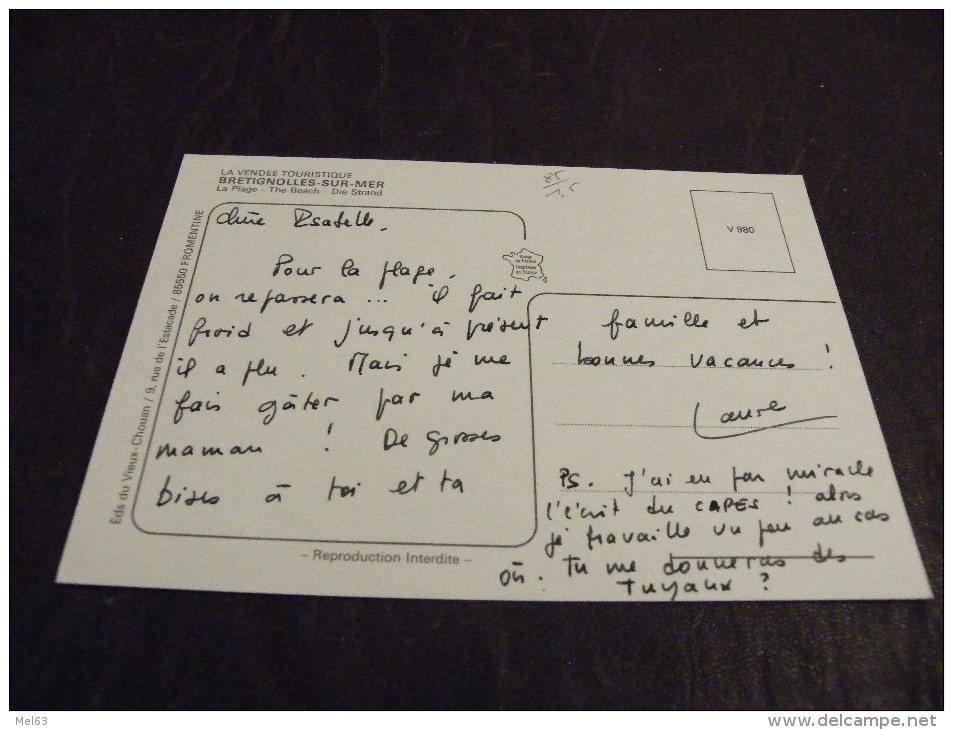 LA VENDEE TOURISTIQUE
BRETIGNOLLES-SUR-MER
La Plage - The Beach - Die Strand
85
1,5
V 980
Image de France
Imprimée en France
Eds du Vieux-Chouan / 9, rue de l'Estacade / 85550 FROMENTINE
Chère Isabelle,
Pour la plage,
on repassera ... il fait
froid et jusqu'à présent
il a plu. Mais je me
fais gâter par ma
maman ! De grosses
bises à toi et ta
famille et
bonnes vacances !
Laure
PS. J'ai eu par miracle
l'écrit du CAPES ! alors
je travaille un peu au cas
où. Tu me donneras des
tuyaux ?
- Reproduction Interdite -
Mel63
www.delcampe.net